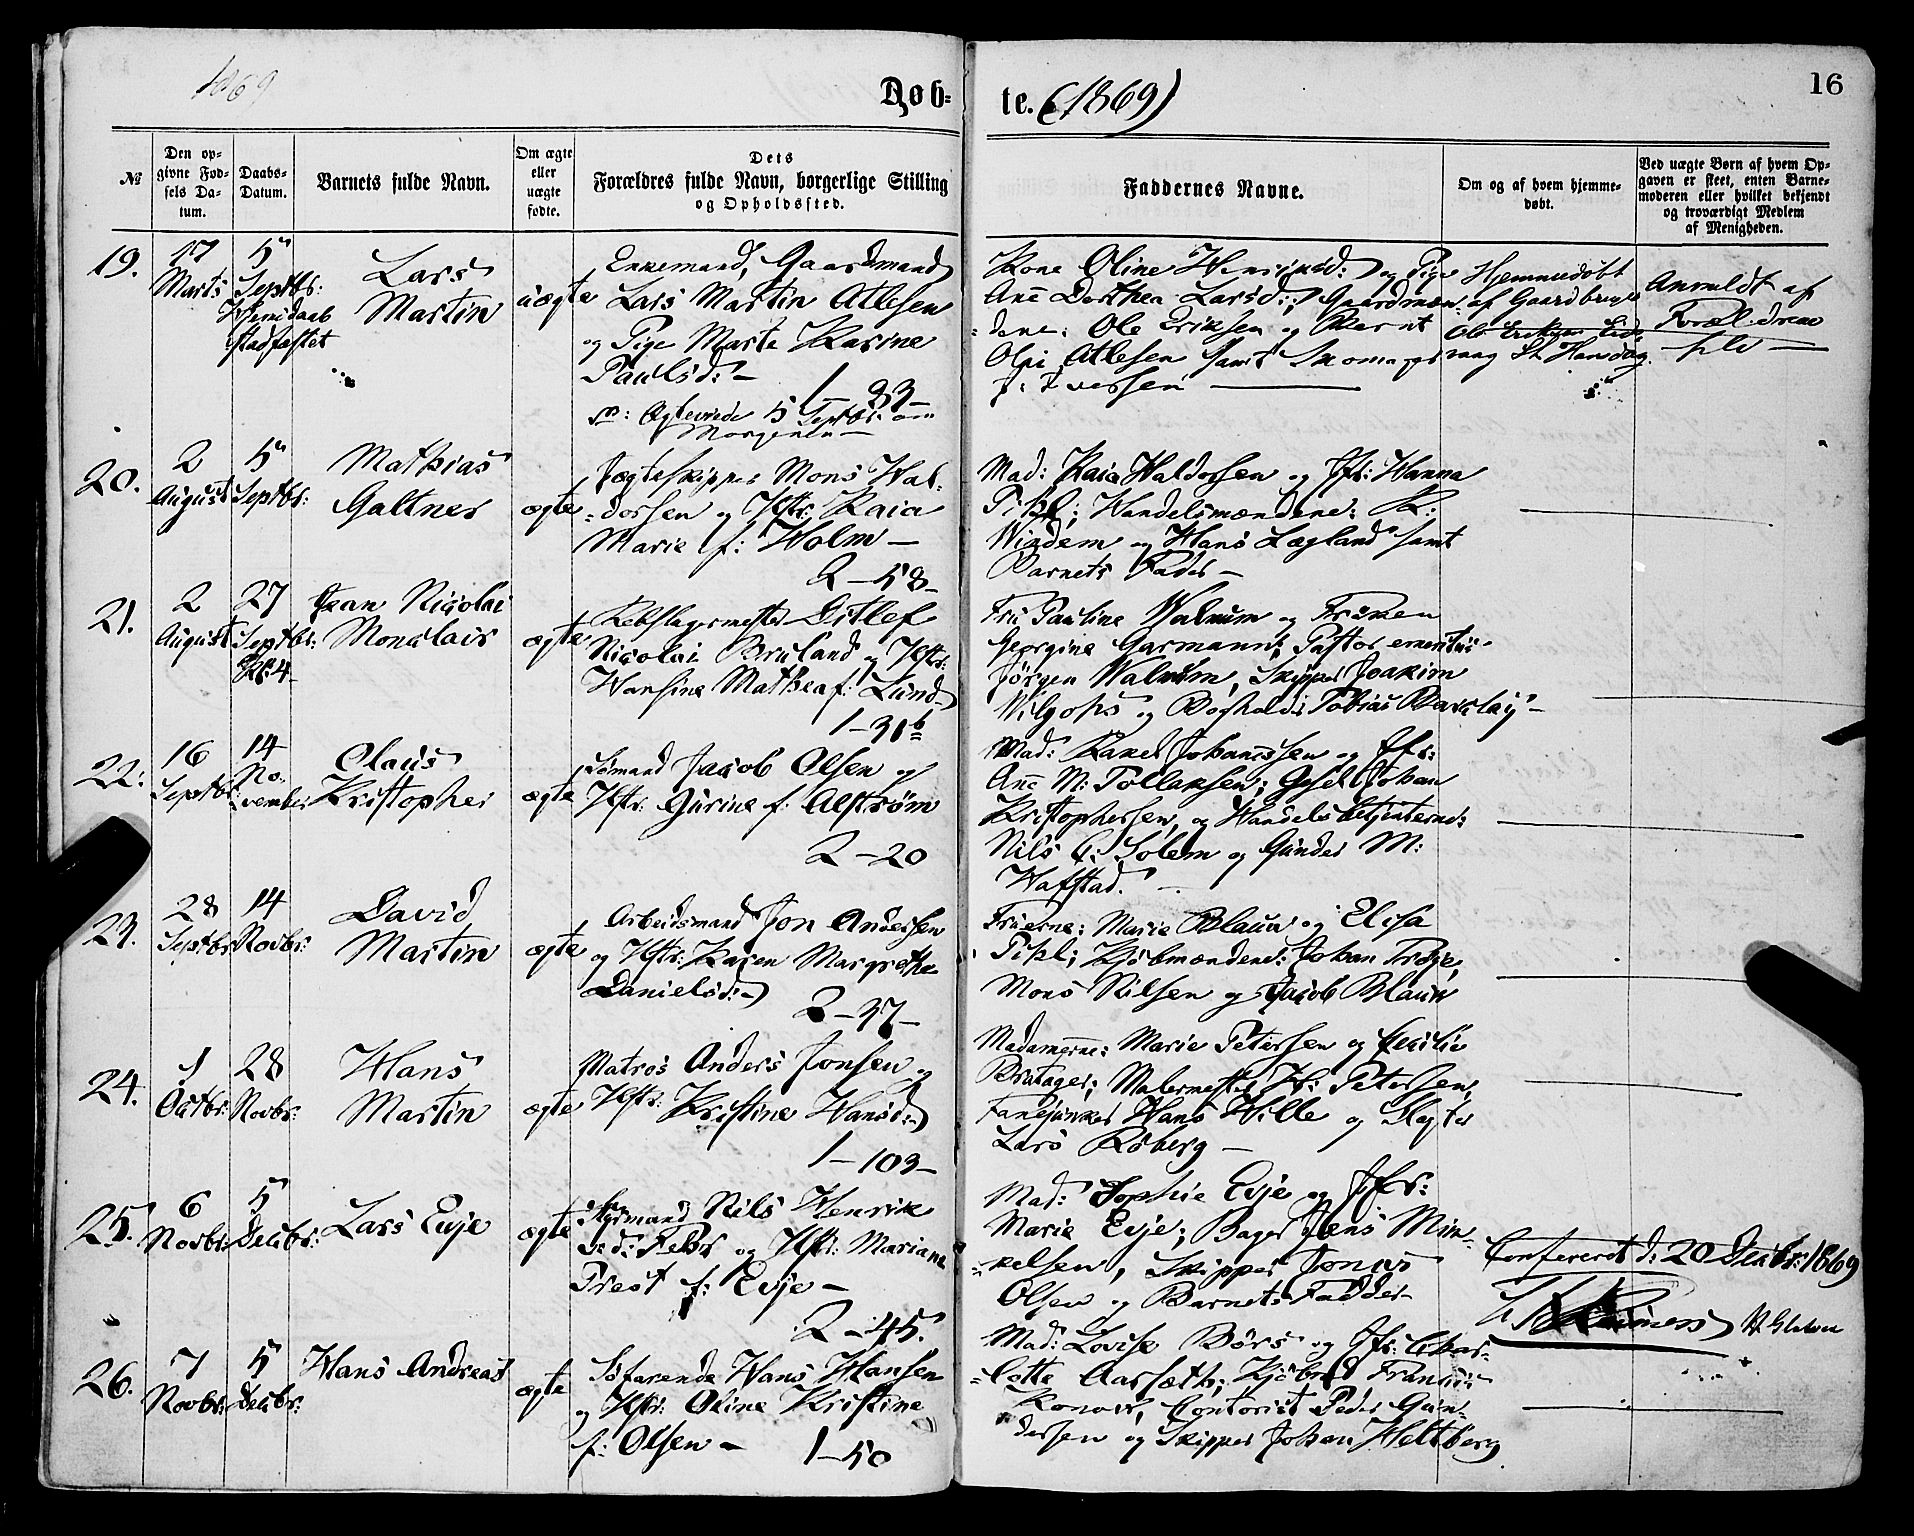 1869
Døb-
te. (1869)
16
№
Den op-
givne Fød-
sels Da-
tum.
Daabs-
Datum.
Barnets fulde Navn.
Om ægte
eller
uægte
fødte.
Dets
Forældres fulde Navn, borgerlige Stilling
og Opholdssted.
Faddernes Navne.
Om og af hvem hjemme-
døbt.
Ved uægte Børn af hvem Op-
gaven er skeet, enten Barne-
moderen eller hvilket bekjendt
og troværdigt Medlem
af Menigheden.
19.
17
Marts
5
Septbr:
Hjemdaab
stadfæstet
Lars
Martin
uægte
Enkemand, Gaardmand
Lars Martin Atlesen
og Pige Marte Karine
Paulsd: –
1 – 83 –
Ægteviede 5 Septbr: om
Morgenen –
Kone Oline Henriksd: og Pige
Ane Dorthea Larsd:; Gaardmæn-
dene: Ole Eriksen og Bernt
Olai Atlesen samt Skomager
J: Iversen
Hjemmedøbt
af Gaardbruger
Ole Eriksen Eide
vaag St Hansdag.
Anmeldt af
Forældrene
selv –
20.
2
August
5
Septbr:
Mathias
Galtner
ægte
Jægteskipper Mons Hal-
dorsen og Hstr: Kaia
Marie f: Holm –
2 – 58 –
Mad: Kaia Haldorsen og Jfr: Hanna
Pihl; Handelsmændene: K:
Windem og Hans Lægland samt
Barnets Fader –
21.
2
August
27
Septbr:
Kl: 4
Jean Nicolai
Monclair
ægte
Rebslagermester Ditlef
Nicolai Bruland og Hstr:
Hansine Mathea f: Lund –
1 – 31 b
Fru Pauline Walnum og Frøken
Georgine Garmann; Pastor emeritus
Jørgen Walnum, Skipper Joakim
og Bogholder Tobias Barclay –
22.
16
Septbr:
14
No-
vember
Olaus
Kristopher
ægte
Sømand Jacob Olsen og
Hstr: Gurine f: Alstrøm
2 – 20
Mad: Karen Johannssen og Jfr:
Ane M: Tollaksen; Gesel Johan
Kristophersen, og Handelsbetjenterne:
Nils C: Solem og Gunder M:
Hafstad.
23.
28
Septbr:
14
Novbr:
David
Martin
ægte
Arbeidsmand Jon Andersen
og Hstr: Karen Margrethe
Danielsd: –
2 – 37 –
Fruerne: Marie Blauw og Elisa
Pihl; Kjøbmændene: Johan Trøye,
Mons Nilsen og Jacob Blauw
24.
1
Octbr:
28
Novbr:
Hans
Martin
ægte
Matros Anders Jonsen og
Hstr: Kristine Hansd: –
1 – 103 –
Madamerne: Marie Petersen og Cecilie
Bratager; Malermester H: Petersen,
Fanejunker Hans Hille og Slagter
Lars Røberg –
25.
6
Novbr:
5
Decbr:
Lars Evje
ægte
Styrmand Nils Henrik
og Hstr: Mariane
Prest f: Evje –
2 – 45.
Mad: Sophie Evje og Jfr:
Marie Evje; Bager Jens Min-
kelsen, Skipper Jonas
Olsen og Barnets Fadder –
Confereret d: 20 Decbr: 1869
26.
7
Novbr:
5
Decbr:
Hans Andreas
ægte
Søfarende Hans Hansen
og Hstr: Oline Kristine
f: Olsen –
1 – 50
Mad: Lovise Børs og Jfr: Char-
lotte Aarsæth; Kjøbmd Frantz
Konow, Contorist Peder Gun-
dersen og Skipper Johan Heltberg